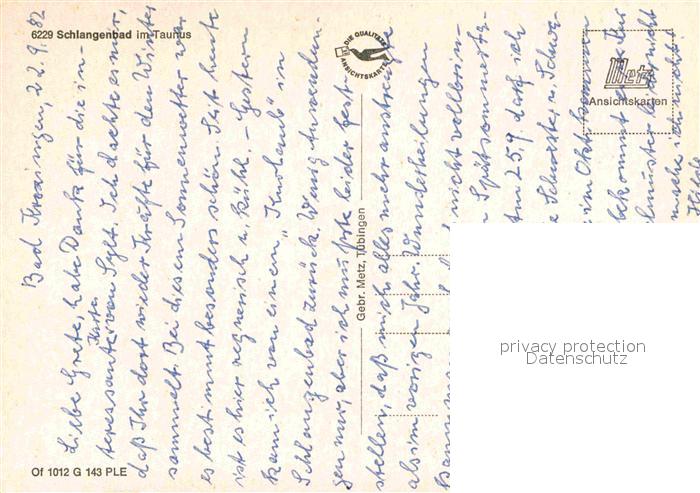 6229 Schlangenbad im Taunus
DIE QUALITÄTS
ANSICHTSKARTE
Metz
Ansichtskarten
Gebr. Metz, Tübingen
Of 1012 G 143 PLE
privacy protection
Datenschutz
Bad Krozingen, 22.9.82
Liebe Grete, habe Dank für die in-
teressante Karte von Sylt. Ich dachte es mir,
daß Ihr dort wieder Kräfte für den Winter
sammelt. Bei diesem Sonnenwetter war
es bestimmt besonders schön. Seit heute
ist es hier regnerisch u. kühl. – Gestern
kam ich von einem "Kurlaub" in
Schlangenbad zurück. Wenig Anwendun-
gen nur, aber ich mußte leider fest-
stellen, daß mich alles mehr anstrengte
als im vorigen Jahr. Wunderheilungen
kann man nicht vollbrin-
Spätsommer
Am 25.9. darf ich
Schwester u. Schwa-
im Oktober
bekommt
nicht